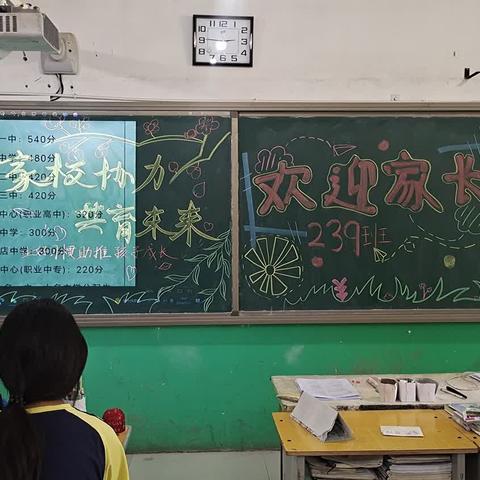 一中：540分
中学：480分
中：420分
三中：420分
中心(职业高中)：320分
中学：300分
店中学：300分
中心(职业中专)：220分
家校协力
共育未来
助推孩子成长
欢迎家长
239班